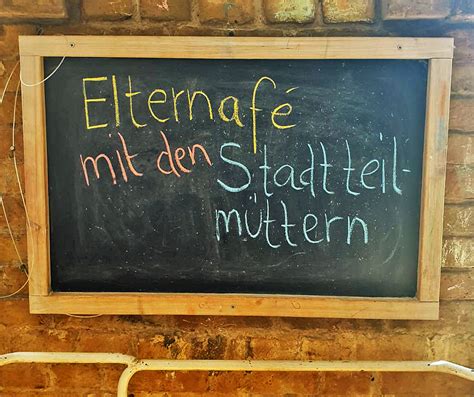 Elternafé
mit den Stadtteil-
müttern